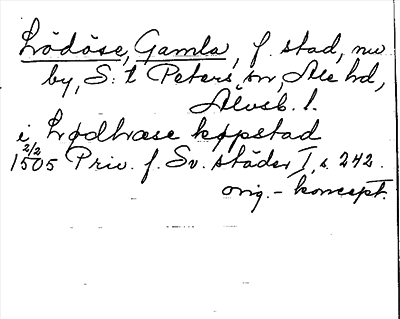 Lödöse, Gamla, f. stad, nu
by, S:t Peters sn, Ale hd,
Älvsb. l.
i Lødhose køpstad
2/2
1505 Priv. f. Sv. städer I, s. 242.
orig. - koncept.